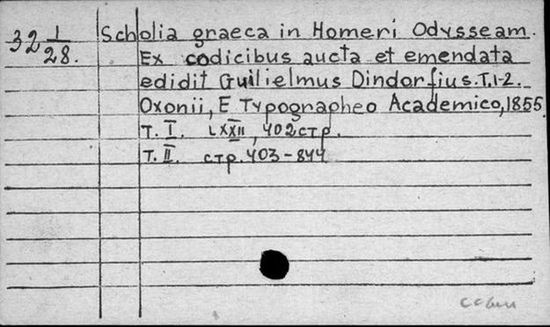 32 1/28. Scholia graeca in Homeri Odysseam.
Ex codicibus aucta et emendata
edidit Guilielmus Dindorfius. T. 1-2.
Oxonii, E Typographeo Academico, 1855
T. I. LXXII, 402 стр.
T. II. стр. 403-844